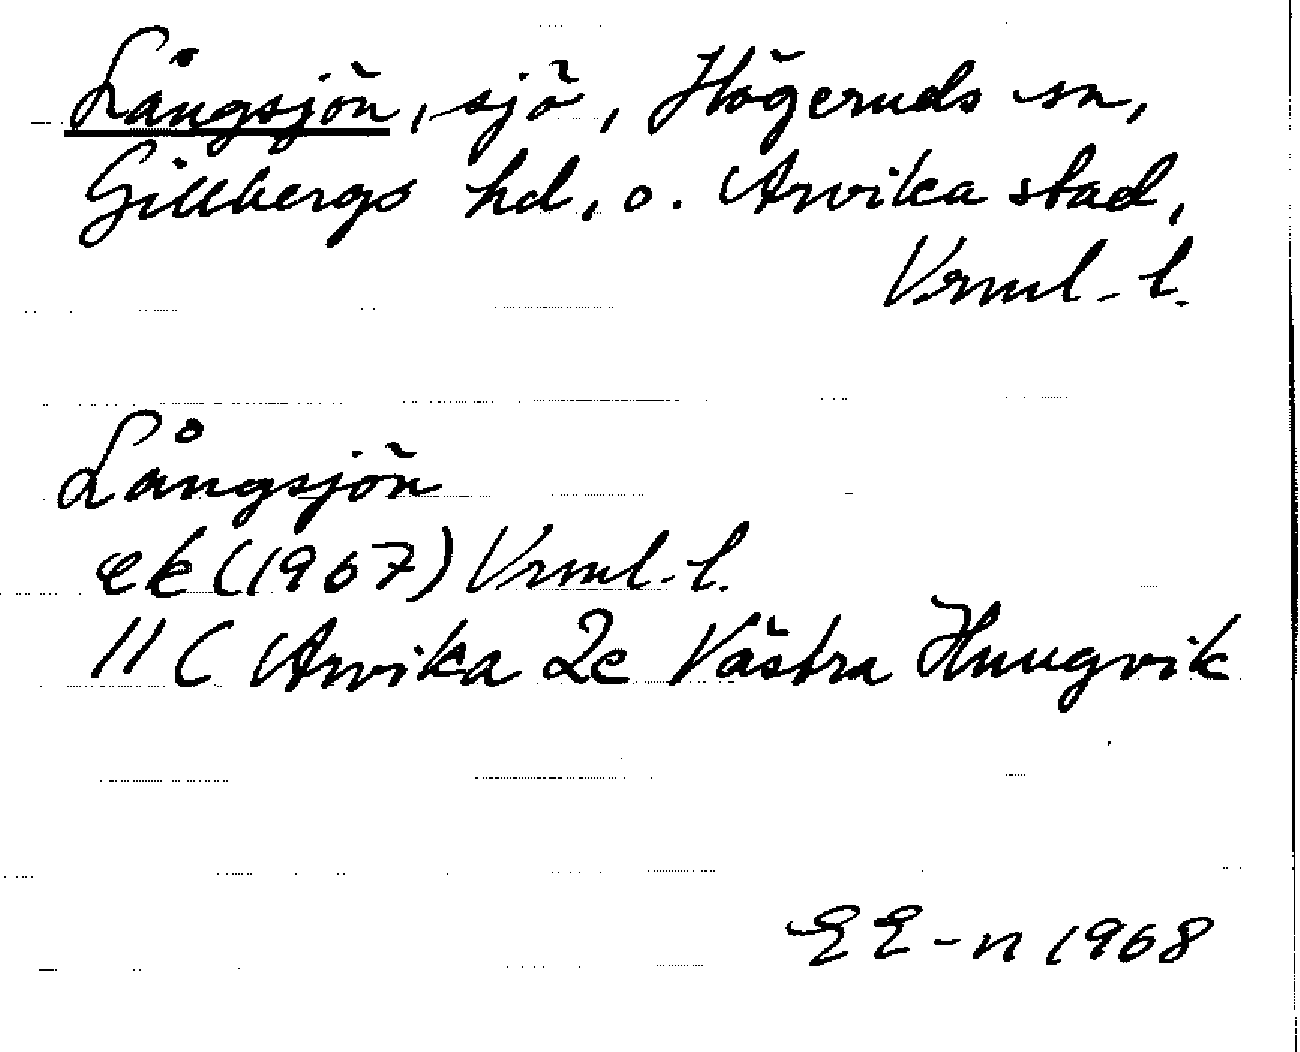 Långsjön, sjö, Högeruds sn,
Gillbergs hd, o. Arvika stad,
Vrml. l.
Långsjön
ek (1967) Vrml. l.
11 C Arvika 2e Västra Hungvik
EE-n 1968